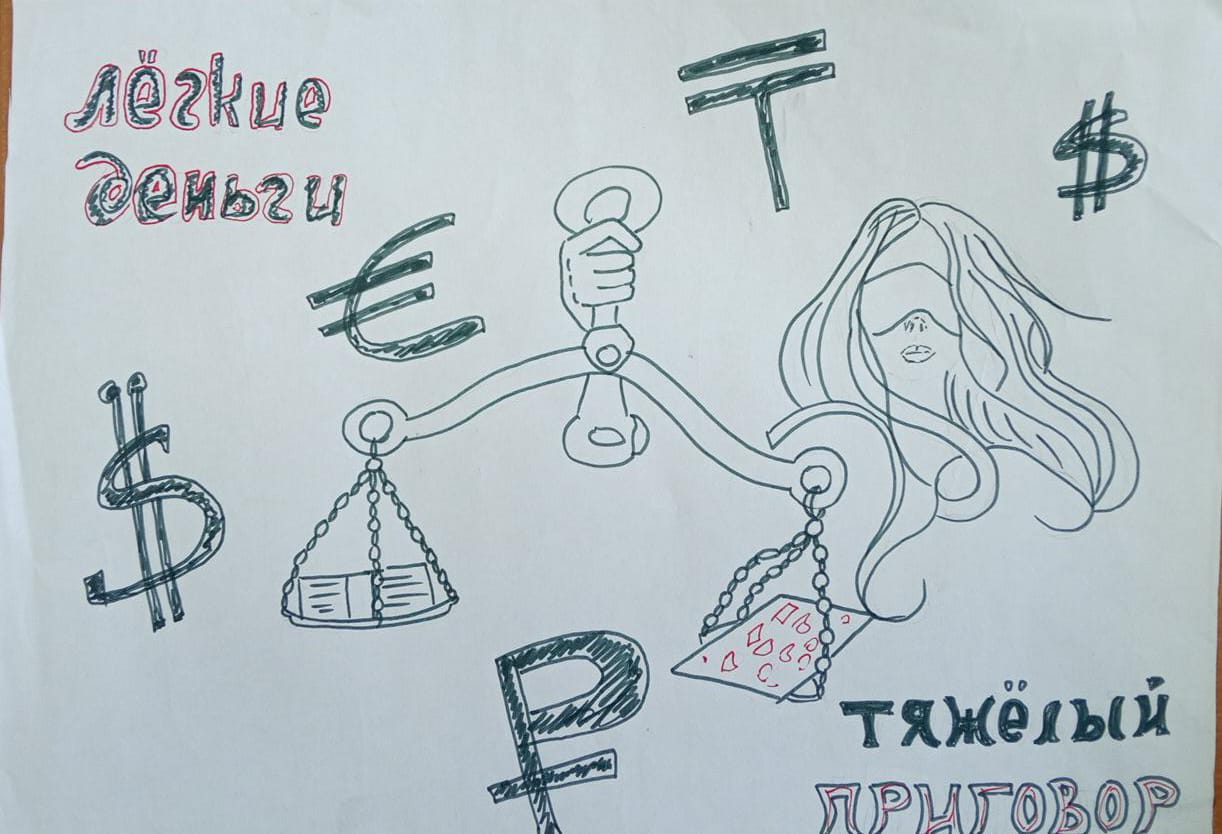 лёгкие
деньги
₸
$
€
$
₽
тяжёлый
ПРИГОВОР